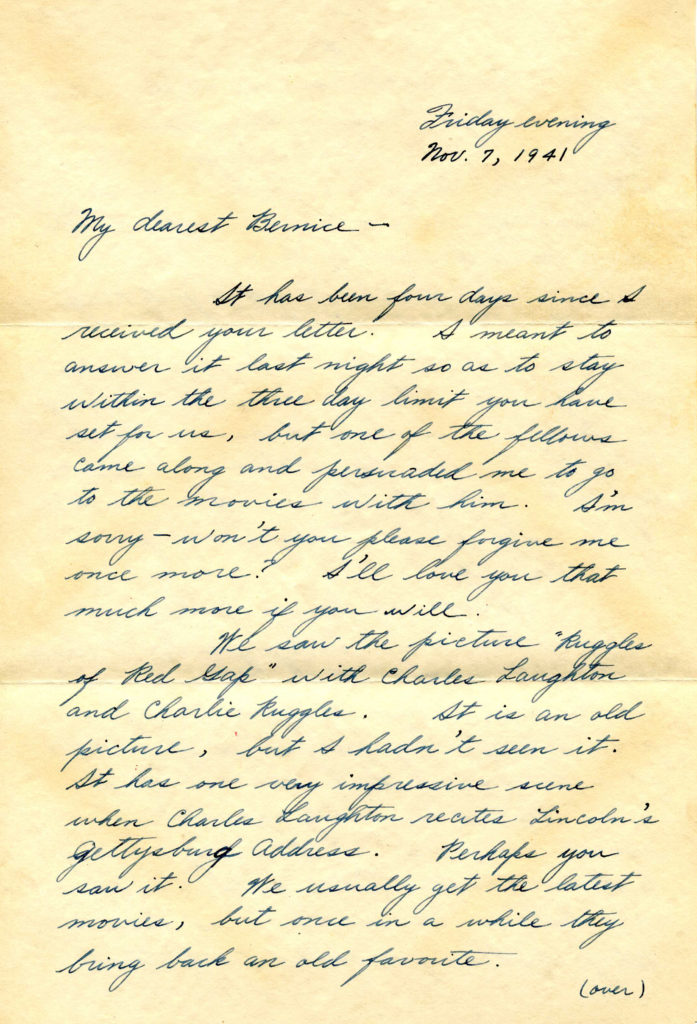 Friday evening
Nov. 7, 1941
My dearest Bernice —
It has been four days since I
received your letter. I meant to
answer it last night so as to stay
within the three day limit you have
set for us, but one of the fellows
came along and persuaded me to go
to the movies with him. I'm
sorry — won't you please forgive me
once more? I'll love you that
much more if you will.
We saw the picture "Ruggles
of Red Gap" with Charles Laughton
and Charlie Ruggles. It is an old
picture, but I hadn't seen it.
It has one very impressive scene
when Charles Laughton recites Lincoln's
Gettysburg Address. Perhaps you
saw it. We usually get the latest
movies, but once in a while they
bring back an old favorite.
(over)